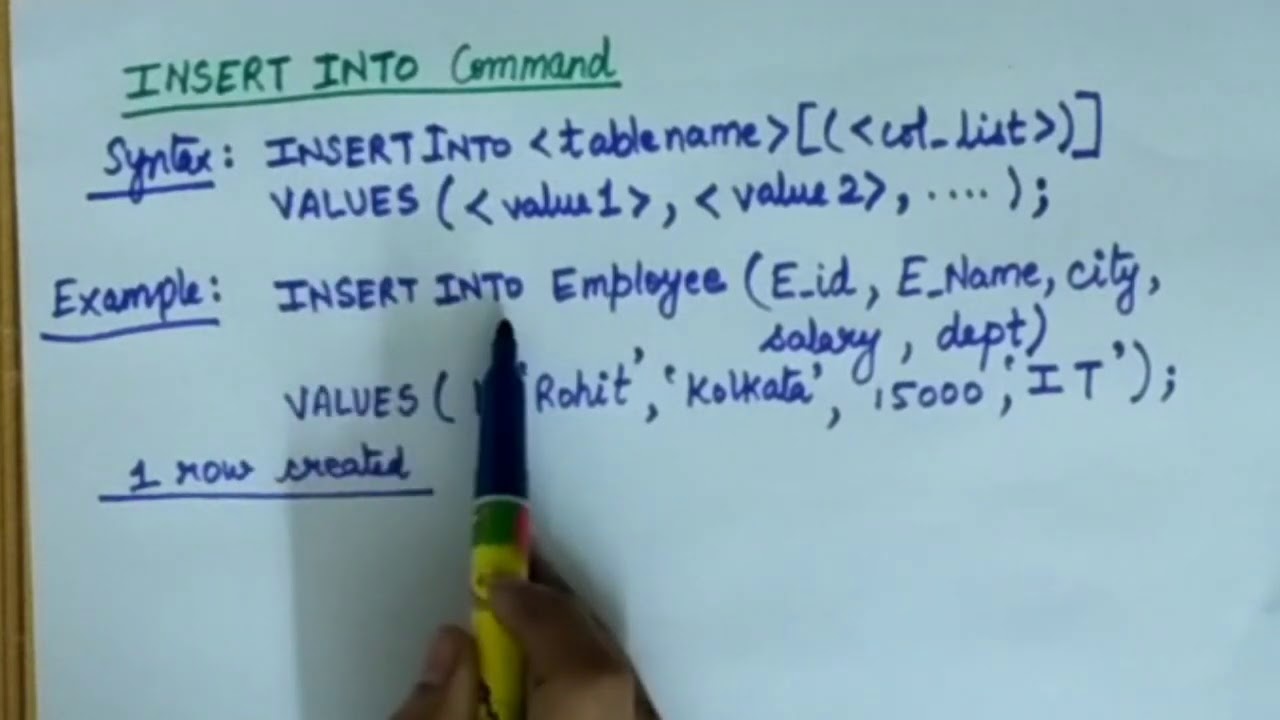 INSERT INTO Command
Syntax: INSERT INTO <table name>[(<col_list>)]
VALUES (<value1>, <value 2>, ....);
Example: INSERT INTO Employee (E_id, E_Name, city,
salary, dept)
VALUES ( 'Rohit', 'Kolkata', 15000, 'IT');
1 row created